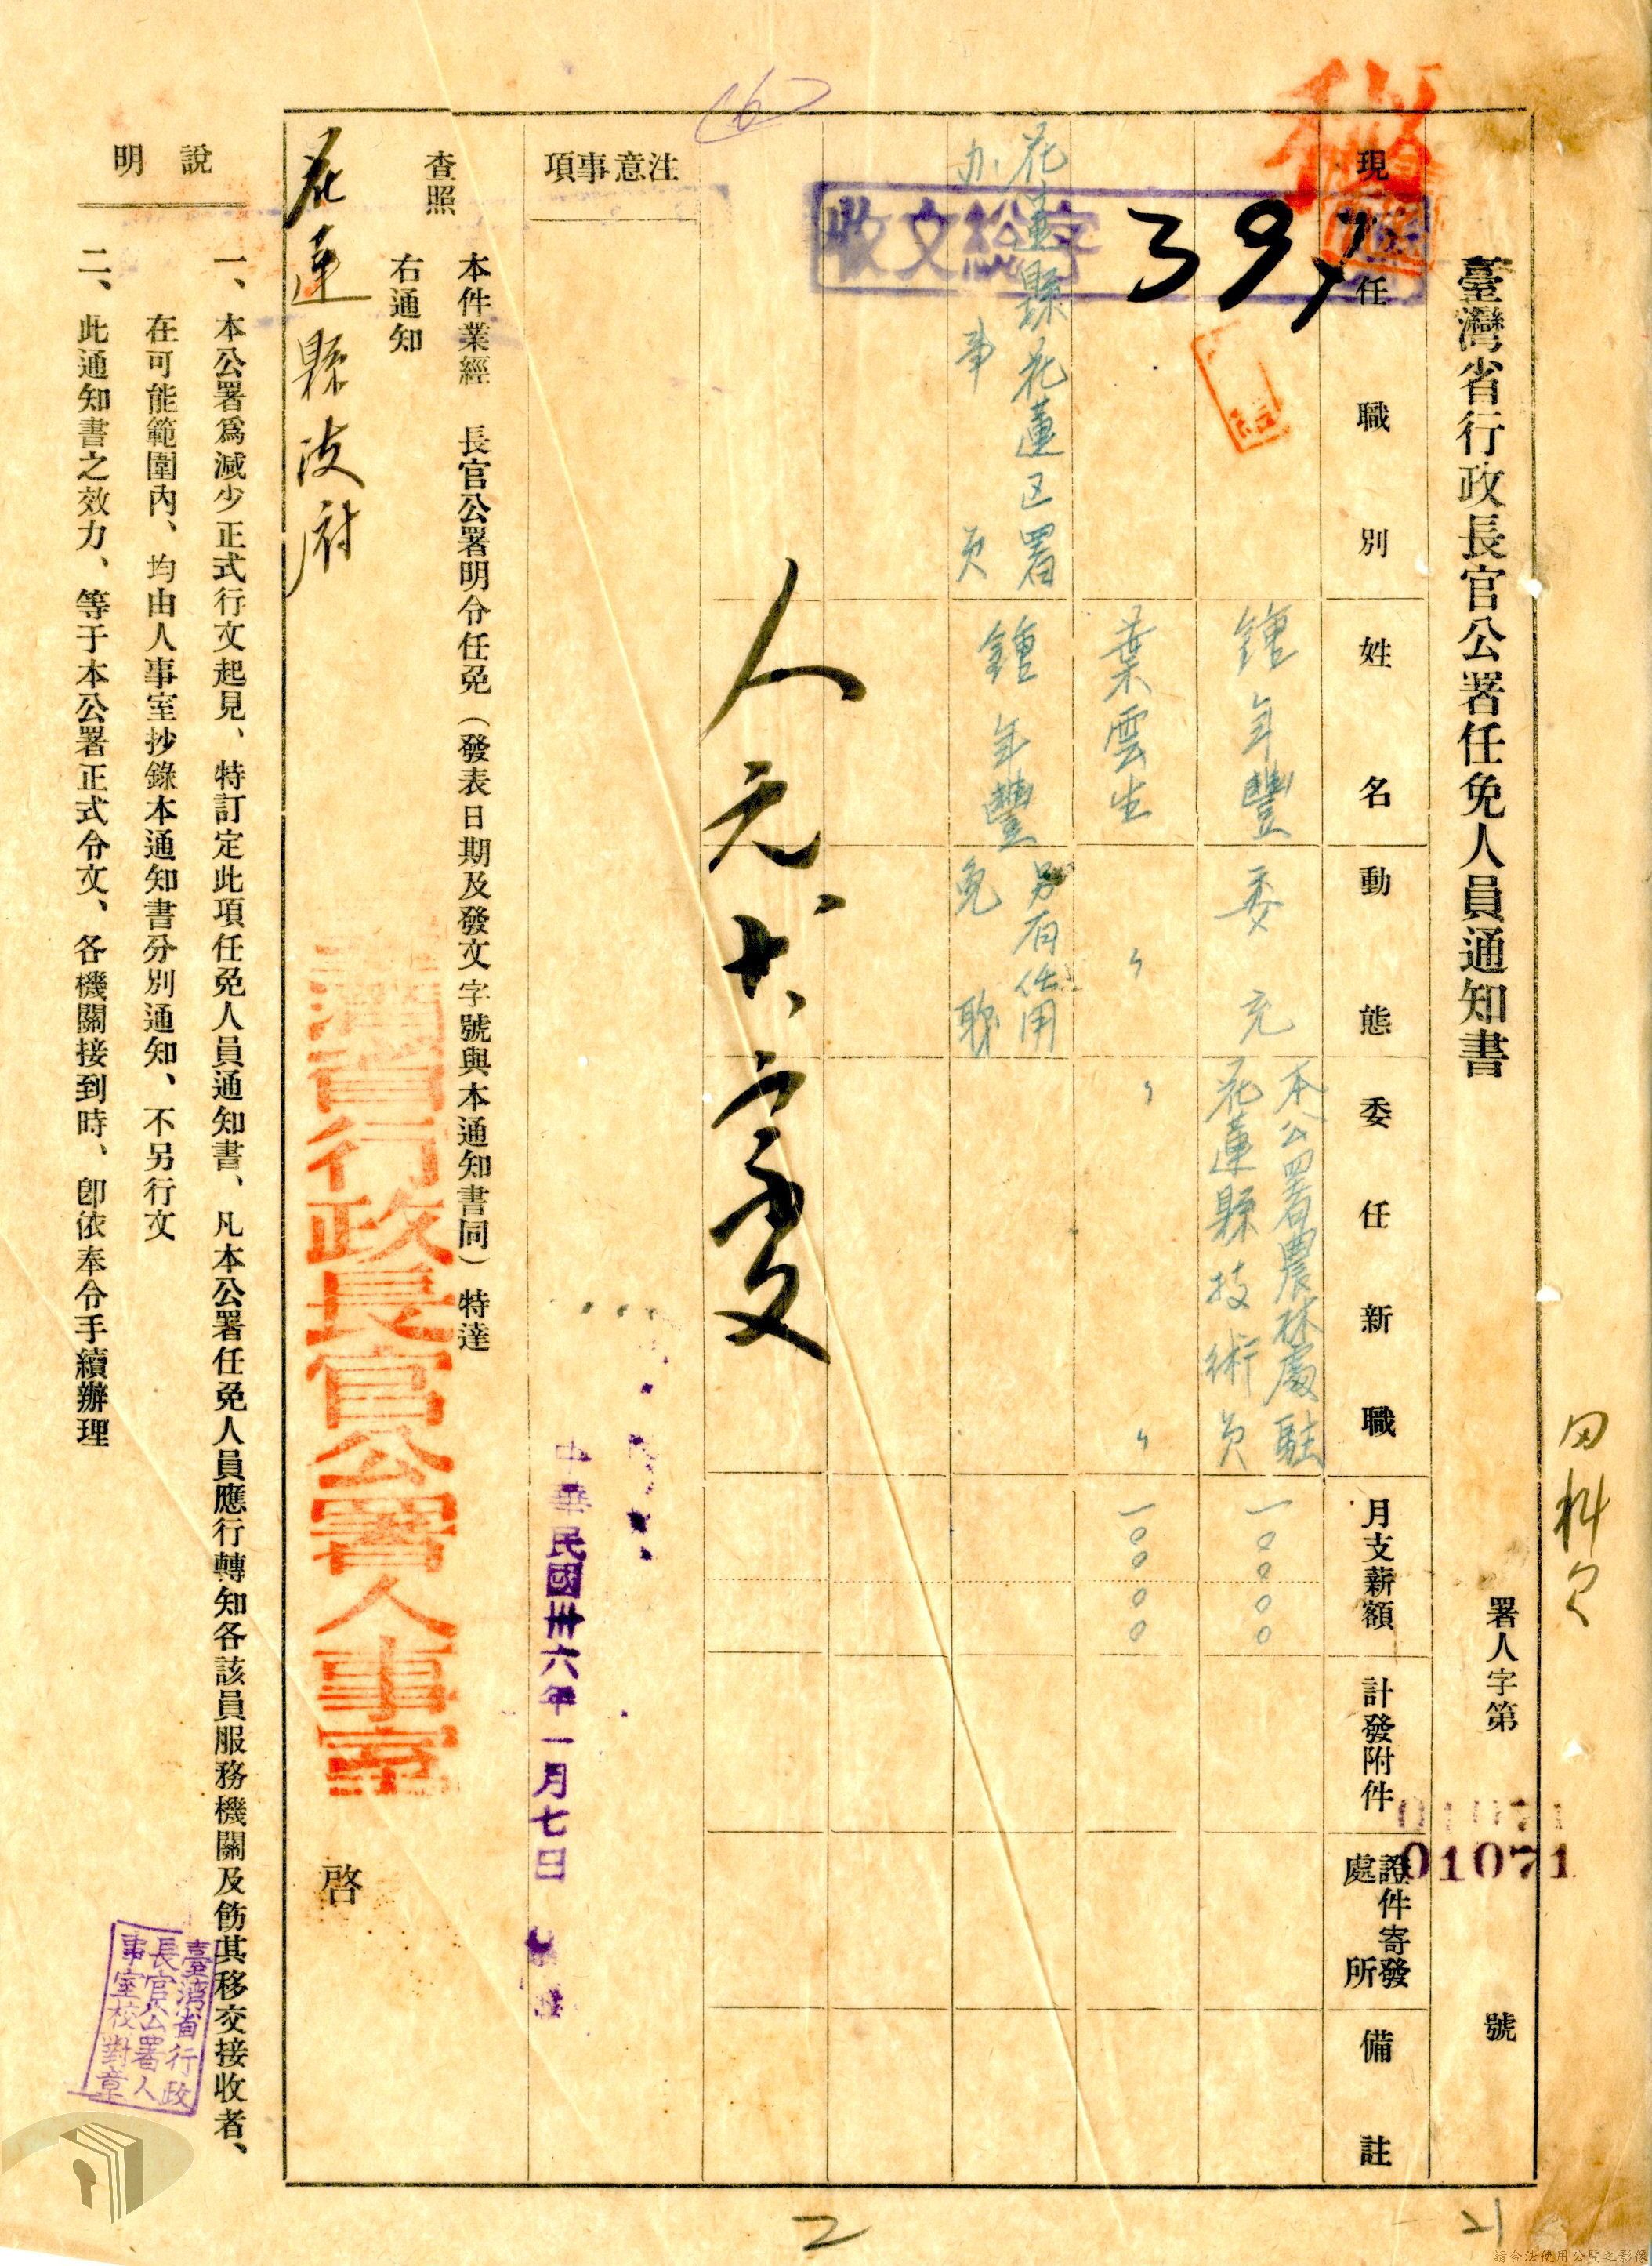 臺灣省行政長官公署任免人員通知書
署人字第
號
01071
現任職別
姓名
動態
委任新職
月支薪額
計發附件
證件寄發
處所
備註
鍾年豐
委充
本公署農林處駐
花蓮縣技術員
一〇〇〇〇
葉雲生
〃
〃
〃
一〇〇〇〇
花蓮縣花蓮区署
办事員
鍾年豐
另有任用
免職
收文總字
397
注意事項
中華民國卅六年一月七日
本件業經 長官公署明令任免(發表日期及發文字號與本通知書同)特達
查照
右通知
花蓮縣政府
臺灣省行政長官公署人事室
啓
說明
一、本公署爲減少正式行文起見、特訂定此項任免人員通知書、凡本公署任免人員應行轉知各該員服務機關及飭其移交接收者、
在可能範圍內、均由人事室抄錄本通知書分別通知、不另行文
二、此通知書之效力、等于本公署正式令文、各機關接到時、卽依奉令手續辦理
臺湾省行政
長官公署人
事室校對章
2
21
請合法使用公開之影像